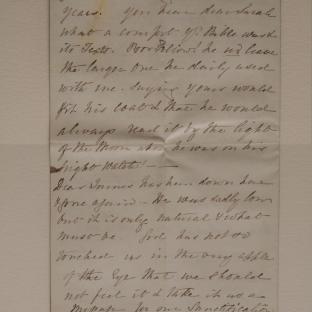 years. You dear dear Sarah
what a comfort yr Bible was
its Texts. Poor he wd leave
the large One he daily used
with me. Saying yours would
fit his coat & that he would
always read it by the light
of the Moon when he was on his
Night Watch! —
Dear James has been down here
& gone again — He was sadly low
but it is only natural & what
must be. God has not
touched us in the very apple
of the Eye that we should
not feel it & take it as a
for our Sanctification